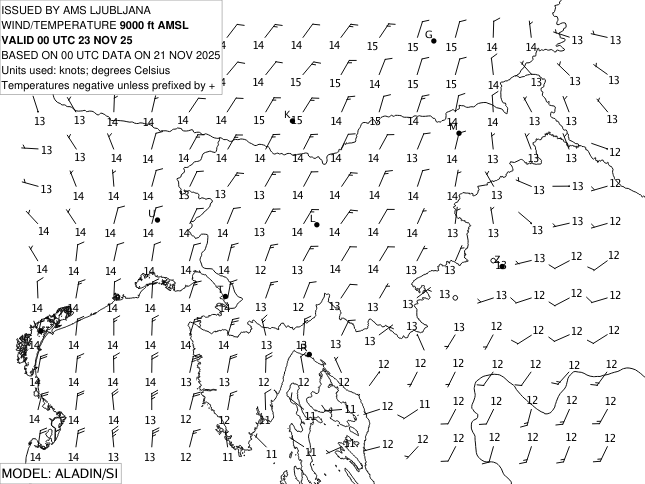 ISSUED BY AMS LJUBLJANA
WIND/TEMPERATURE 9000 ft AMSL
VALID 00 UTC 23 NOV 25
BASED ON 00 UTC DATA ON 21 NOV 2025
Units used: knots; degrees Celsius
Temperatures negative unless prefixed by +
14 14 14 15 15 G 15 14 14 13 13
14 14 14 15 14 15 14 14 13 13
13 13 14 14 14 15 K 15 14 15 14 M 14 14 13 13
13 13 14 14 14 14 14 14 14 14 14 13 13 13 12
13 14 14 14 13 13 14 14 14 14 14 13 13 13 12
14 14 14 U 14 14 14 14 L 14 14 14 13 13 13 13 12
14 14 14 14 14 12 13 14 14 13 13 Z 12 12 12
14 14 14 14 14 T 14 13 12 13 13 13 13 12 12 12 12
V 14 14 14 14 14 14 13 13 R 13 13 13 12 12 12 12
14 14 14 14 13 13 12 12 12 12 12 12 12 12 12 12
14 14 14 13 12 12 11 11 11 12 11 12 12 12 12
14 13 13 12 11 11 11 11 12 12 12 12 12 12
MODEL: ALADIN/SI